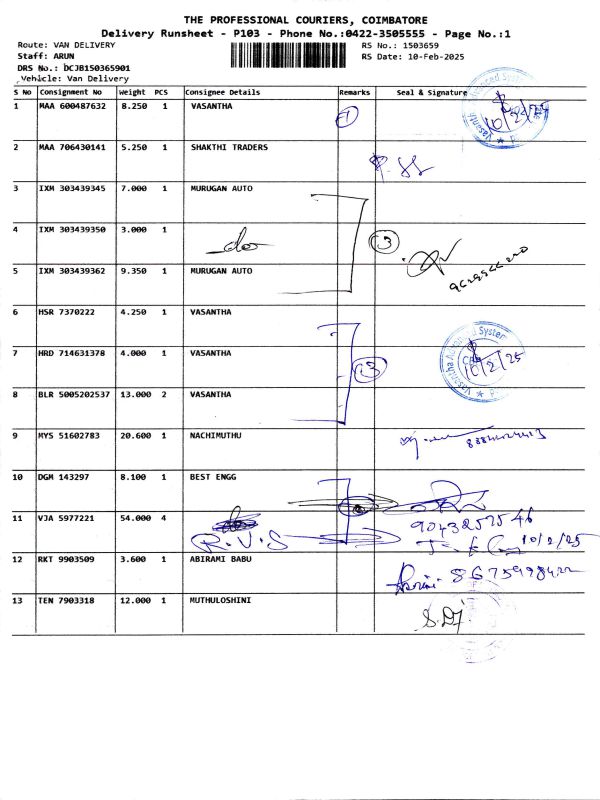 THE PROFESSIONAL COURIERS, COIMBATORE
Delivery Runsheet - P103 - Phone No.:0422-3505555 - Page No.:1
Route: VAN DELIVERY RS No.: 1503659
Staff: ARUN RS Date: 10-Feb-2025
DRS No.: DCJB150365901
Vehicle: Van Delivery
S No Consignment No Weight PCS Consignee Details Remarks Seal & Signature
1 MAA 600487632 8.250 1 VASANTHA 1 10/2/25
2 MAA 706430141 5.250 1 SHAKTHI TRADERS
3 IXM 303439345 7.000 1 MURUGAN AUTO
4 IXM 303439350 3.000 1 do 3
5 IXM 303439362 9.350 1 MURUGAN AUTO
6 HSR 7370222 4.250 1 VASANTHA
7 HRD 714631378 4.000 1 VASANTHA 3 10/2/25
8 BLR 5005202537 13.000 2 VASANTHA
9 MYS 51602783 20.600 1 NACHIMUTHU
10 DGM 143297 8.100 1 BEST ENGG
11 VJA 5977221 54.000 4 R.V.S 9043257546
10/2/25
12 RKT 9903509 3.600 1 ABIRAMI BABU
13 TEN 7903318 12.000 1 MUTHULOSHINI